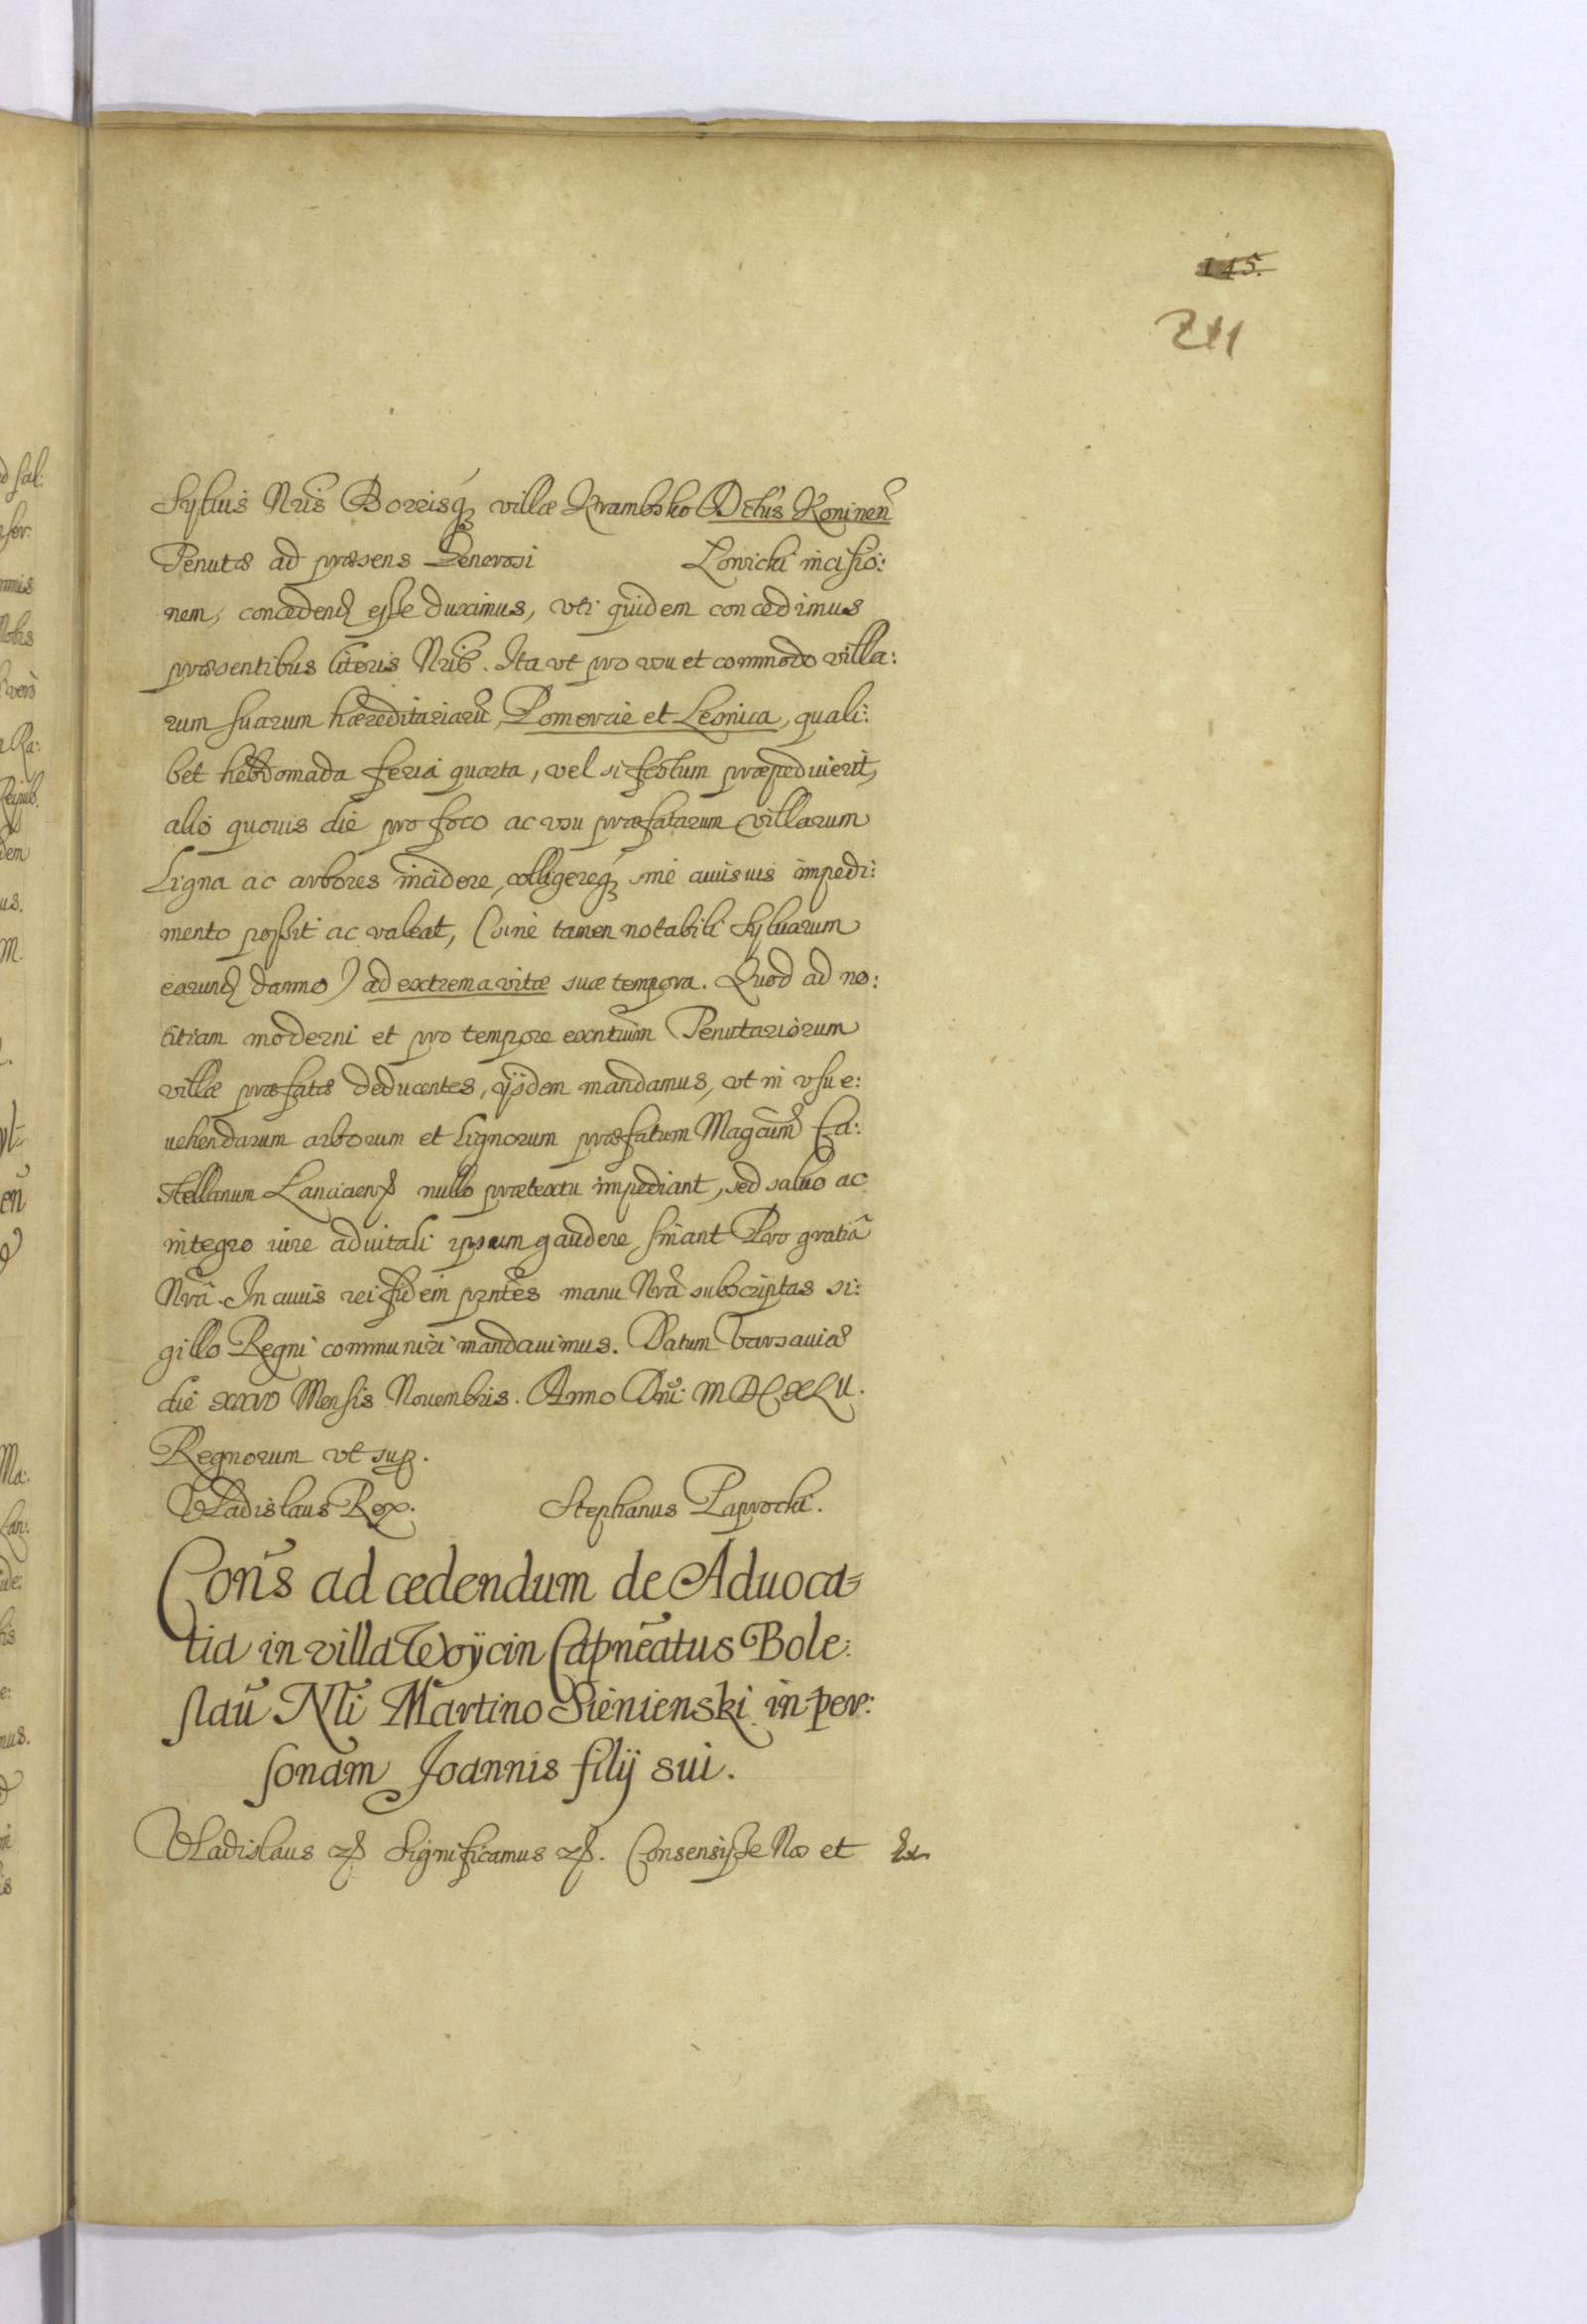 145.
211
Syluis Nris Borrisq villæ Krambsko Dctus Koninen
Tenutæ ad præsens Generosi Lonicki incisio:
nem, concedend esse duximus, vti quidem concedimus
præsentibus literis Nris. Ita vt pro vsu et commodo villa:
rum suarum hæreditariaru, Pomorcie et Leonica, quali:
bet hebdomada feria quarta, vel si festum præpediuerit,
alio quouis die pro foco ac vsu præfatarum villarum
Ligna ac arbores incidere, colligereq sine cuiusuis impedi:
mento possit ac valeat, (sine tamen notabili syluarum
earund damno) ad extrema vitæ suæ tempora. Quod ad no:
titiam moderni et pro tempore exntium Tenutariorum
villæ præfatæ deducentes, ijsdem mandamus, vt in vsu e:
uehendarum arborum et lignorum præfatum Magcum Ca:
stellanum Lanciaen nullo prætextu impediant, sed saluo ac
integro iure aduitali ipsum gaudere sinant Pro gratiâ
Nrâ. In cuius rei fidem pzntes manu Nrâ subscriptas si:
gillo Regni communiri mandauimus. Datum Varsauiæ
die XXVI Mensis Nouembris. Anno Dni: MDCXLV.
Regnorum vt sup.
Vladislaus Rex. Stephanus Paprocki.
Cons ad cedendum de Aduoca=
tia in villa Woÿcin Capneatus Bole:
slau Nli Martino Sienienski in per:
sonam Joannis filij sui.
Vladislaus etc Significamus etc. Consensisse Nos et Ex